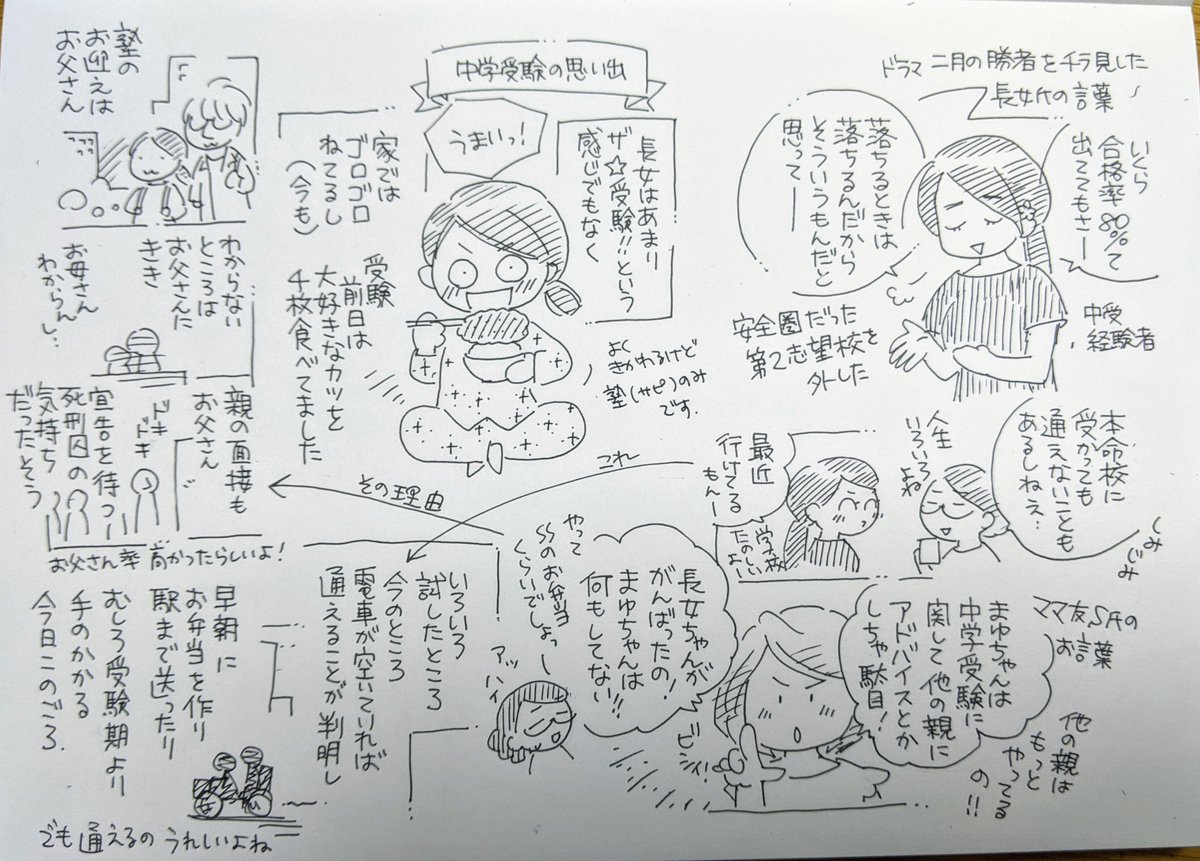 中学受験の思い出
ドラマ 二月の勝者をチラ見した
長女氏の言葉
いくら
合格率80%て
出ててもさー
落ちるときは
落ちるんだから
そういうもんだと
思ってー
中受
経験者
安全圏だった
第2志望校を
外した
長女はあまり
ザ☆受験!!という
感じでもなく
うまいっ!
よく
きかれるけど
塾(サピ)のみ
です.
家では
ゴロゴロ
ねてるし
(今も)
受験
前日は
大好きなカツを
4枚食べてました
塾の
お迎えは
お父さん
わからない
ところは
お父さんに
きき
お母さん
わからんし…
親の面接も
お父さん
ドキ
ドキ
宣告を待つ
死刑囚の
気持ち
だったそう
お父さん率高かったらしいよ!
本命校に
受かっても
通えないことも
あるしねえ…
しみ
じみ
人生
いろいろ
よね
最近
行けてる
もんー
学校
たのしい
よー
ママ友S氏の
お言葉
まゆちゃんは
中学受験に
関して他の親に
アドバイスとか
しちゃ駄目!
他の親は
もっと
やってる
の!!
長女ちゃんが
がんばったの!
まゆちゃんは
何もしてない!!
ビシィッ
やって
〜〜のお弁当
くらいでしょっ
アッハイ
その理由
これ
いろいろ
試したところ
今のところ
電車が空いていれば
通えることが判明し
早朝に
お弁当を作り
駅まで送ったり
むしろ受験期より
手のかかる
今日このごろ.
でも通えるの うれしいよね